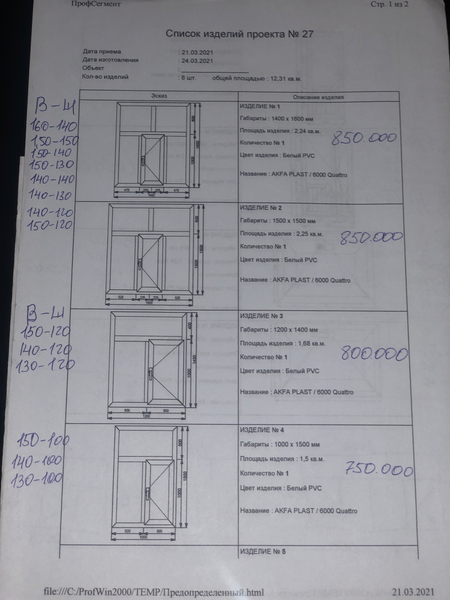 ПрофСегмент
Стр. 1 из 2
Список изделий проекта № 27
Дата приема : 21.03.2021
Дата изготовления : 24.03.2021
Объект :
Кол-во изделий : 6 шт. общей площадью : 12,31 кв.м.
Эскиз
Описание изделия
В-Ш
160-140
1,50-150
150-140
150-130
140-140
140-130
140-120
150-120
ИЗДЕЛИЕ № 1
Габариты : 1400 x 1600 мм
Площадь изделия : 2,24 кв.м.
Количество № 1
850.000
Цвет изделия : Белый PVC
Название : AKFA PLAST / 6000 Quattro
ИЗДЕЛИЕ № 2
Габариты : 1500 x 1500 мм
Площадь изделия : 2,25 кв.м.
850.000
Количество № 1
Цвет изделия : Белый PVC
Название : AKFA PLAST / 6000 Quattro
В-Ш
1,50-120
140-120
130-120
ИЗДЕЛИЕ № 3
Габариты : 1200 x 1400 мм
Площадь изделия : 1,68 кв.м.
800000
Количество № 1
Цвет изделия : Белый PVC
Название : AKFA PLAST / 6000 Quattro
150-100
140-100
130-100
ИЗДЕЛИЕ № 4
Габариты : 1000 x 1500 мм
Площадь изделия : 1,5 кв.м.
750.000
Количество № 1
Цвет изделия : Белый PVC
Название : AKFA PLAST / 6000 Quattro
ИЗДЕЛИЕ № 5
file:///C:/ProfWin2000/TEMP/Предопределенный.html
21.03.2021